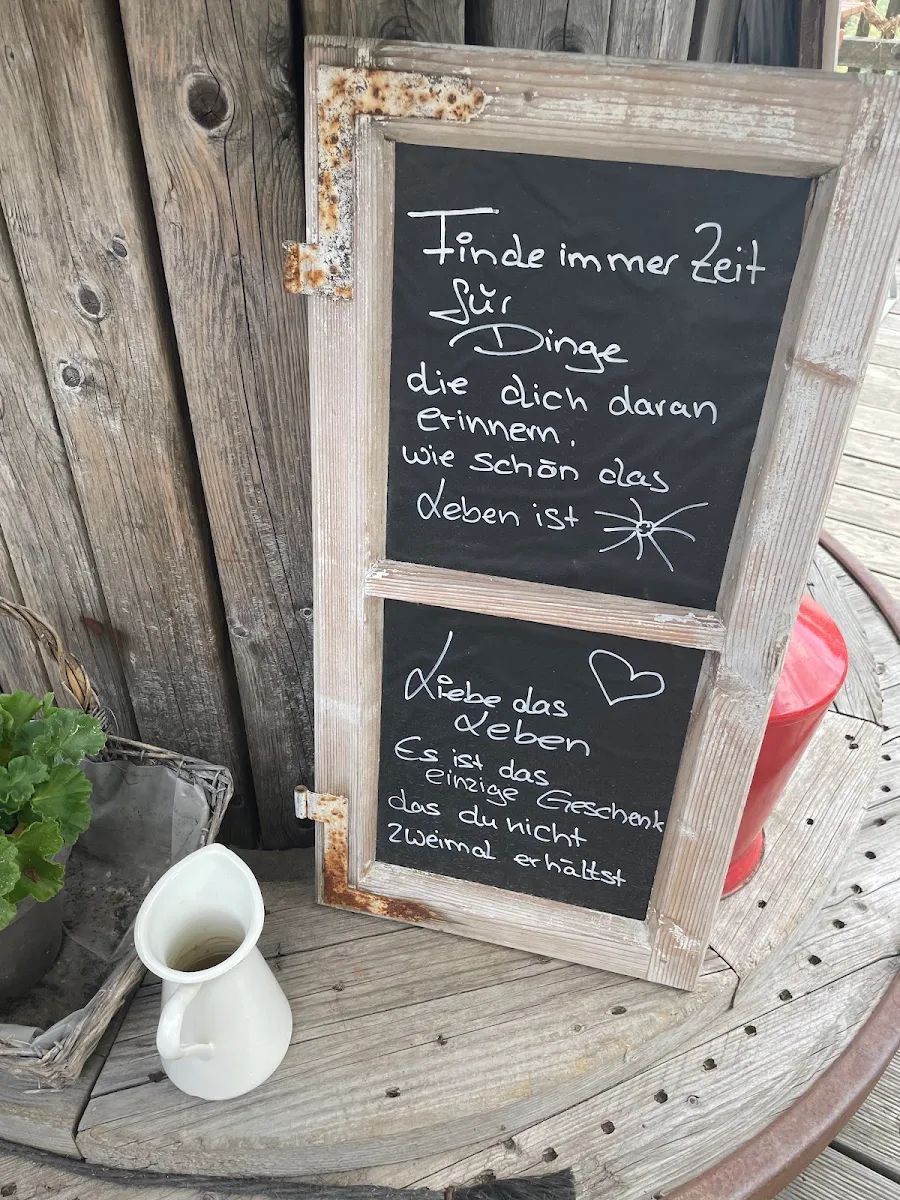 Finde immer Zeit
für
Dinge
die dich daran
erinnern.
wie schön das
Leben ist
Liebe das
Leben
Es ist das
einzige Geschenk
das du nicht
zweimal erhältst